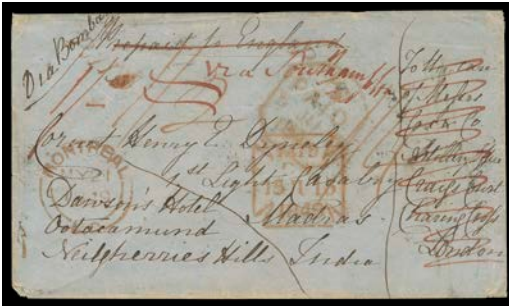 Via Bombay
Prepaid to England
via Southampton
Cornet Henry E Dyneley
1st Light Cavalry
Dawson's Hotel Madras
Ootacamund
Neilgherries Hills India
To the care
of Messrs
& Co
Craig's Court
Charing Cross
London
MONTREAL
PAID